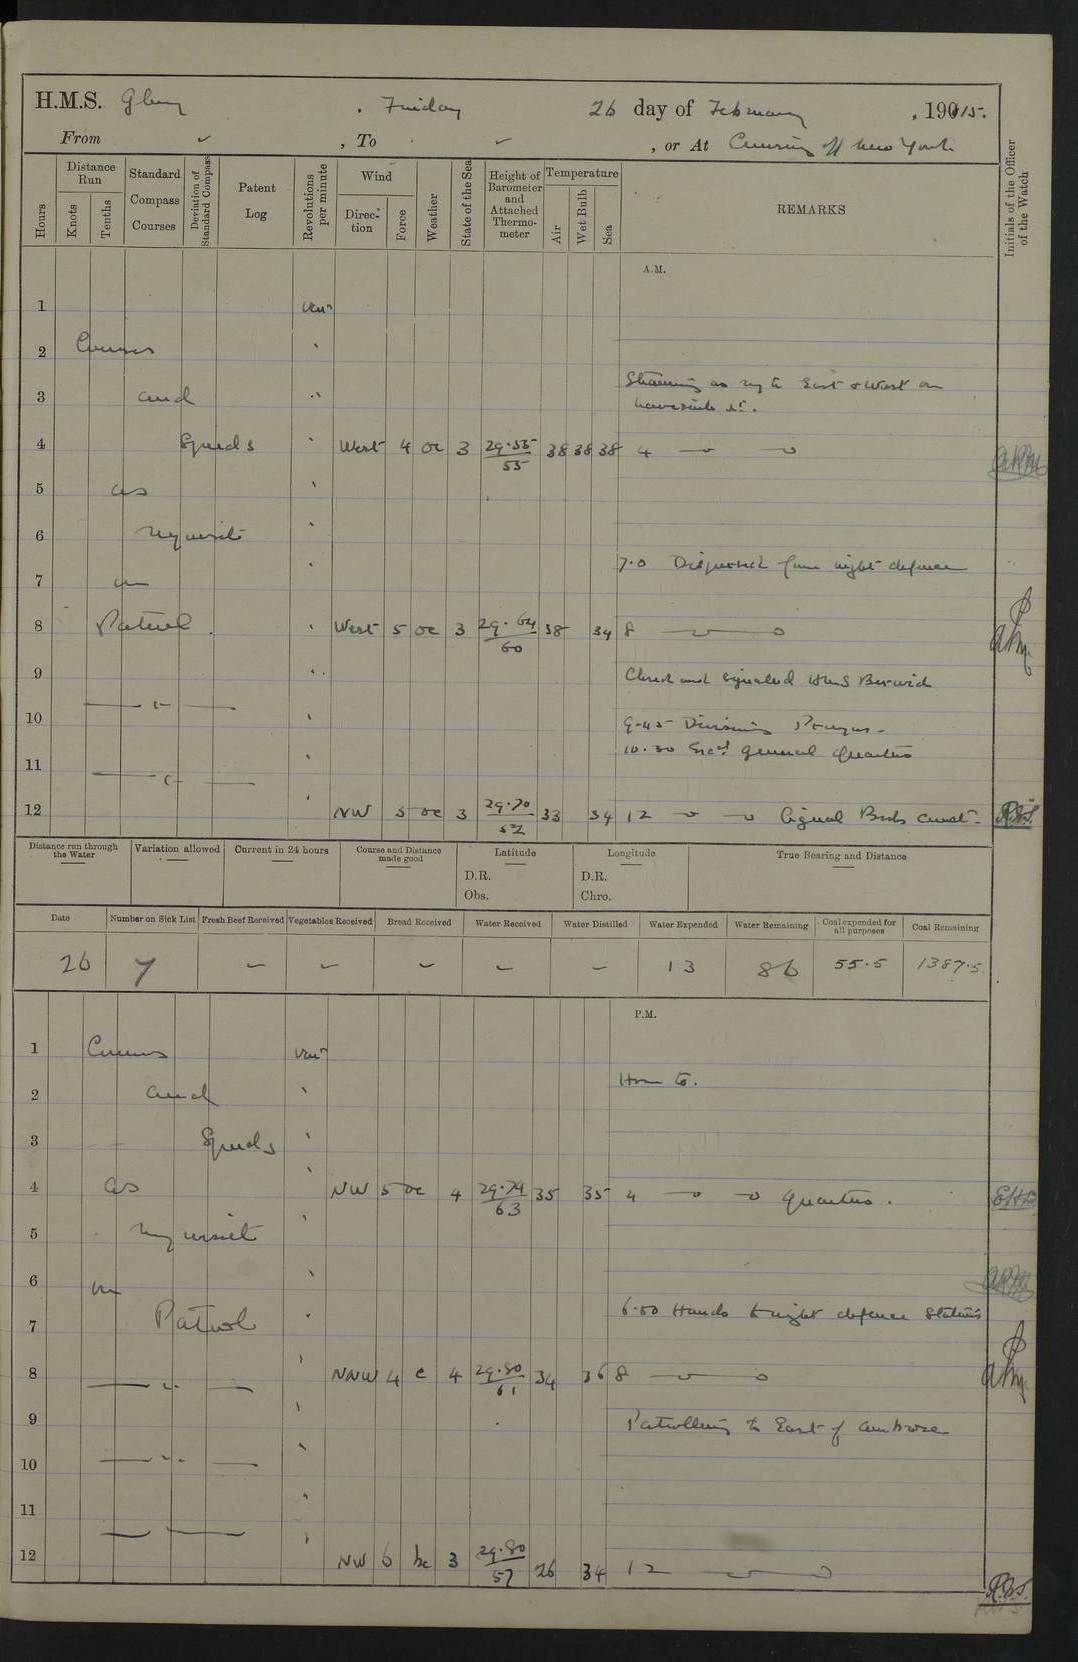 H.M.S. Glory . Friday 26 day of February , 191915.
From ✓ , To ✓ , or At Cruising off New York
Hours
Distance Run
Knots
Tenths
Standard Compass Courses
Deviation of Standard Compass
Patent Log
Revolutions per minute
Wind
Direc-tion
Force
Weather
State of the Sea
Height of Barometer and Attached Thermo-meter
Temperature
Air
Wet Bulb
Sea
REMARKS
Initials of the Officer of the Watch
A.M.
1
2 Courses
3 and
Steaming as req to East & West on
4 Speeds West 4 oc 3 29.55 55 38 38 38 4
5 as
6 requisite
7.0 Dispersed from night defence
7 on
8 Patrol . West 5 oc 3 29.64 60 38 34 8
9
Closed and signalled HMS Berwick
10
9.45 Divisions Prayers
10.30 General Quarters
11
12 NW 5 oc 3 29.70 52 33 34 12 Signal Books
Distance run through the Water
Variation allowed
Current in 24 hours
Course and Distance made good
Latitude
D.R.
Obs.
Longitude
D.R.
Chro.
True Bearing and Distance
Date Number on Sick List Fresh Beef Received Vegetables Received Bread Received Water Received Water Distilled Water Expended Water Remaining Coal expended for all purposes Coal Remaining
26 7 – – – – – 13 86 55.5 1387.5
P.M.
1 Courses
2 and
Hove to.
3 Speeds
4 as NW 5 oc 4 29.74 63 35 35 4 Quarters .
5 requisite
6 on
6.50 Hands to night defence stations
7 Patrol
8 NNW 4 c 4 29.80 61 34 36 8
9
Patrolling to East of Ambrose
10
11
12 NW 6 bc 3 29.80 57 26 34 12